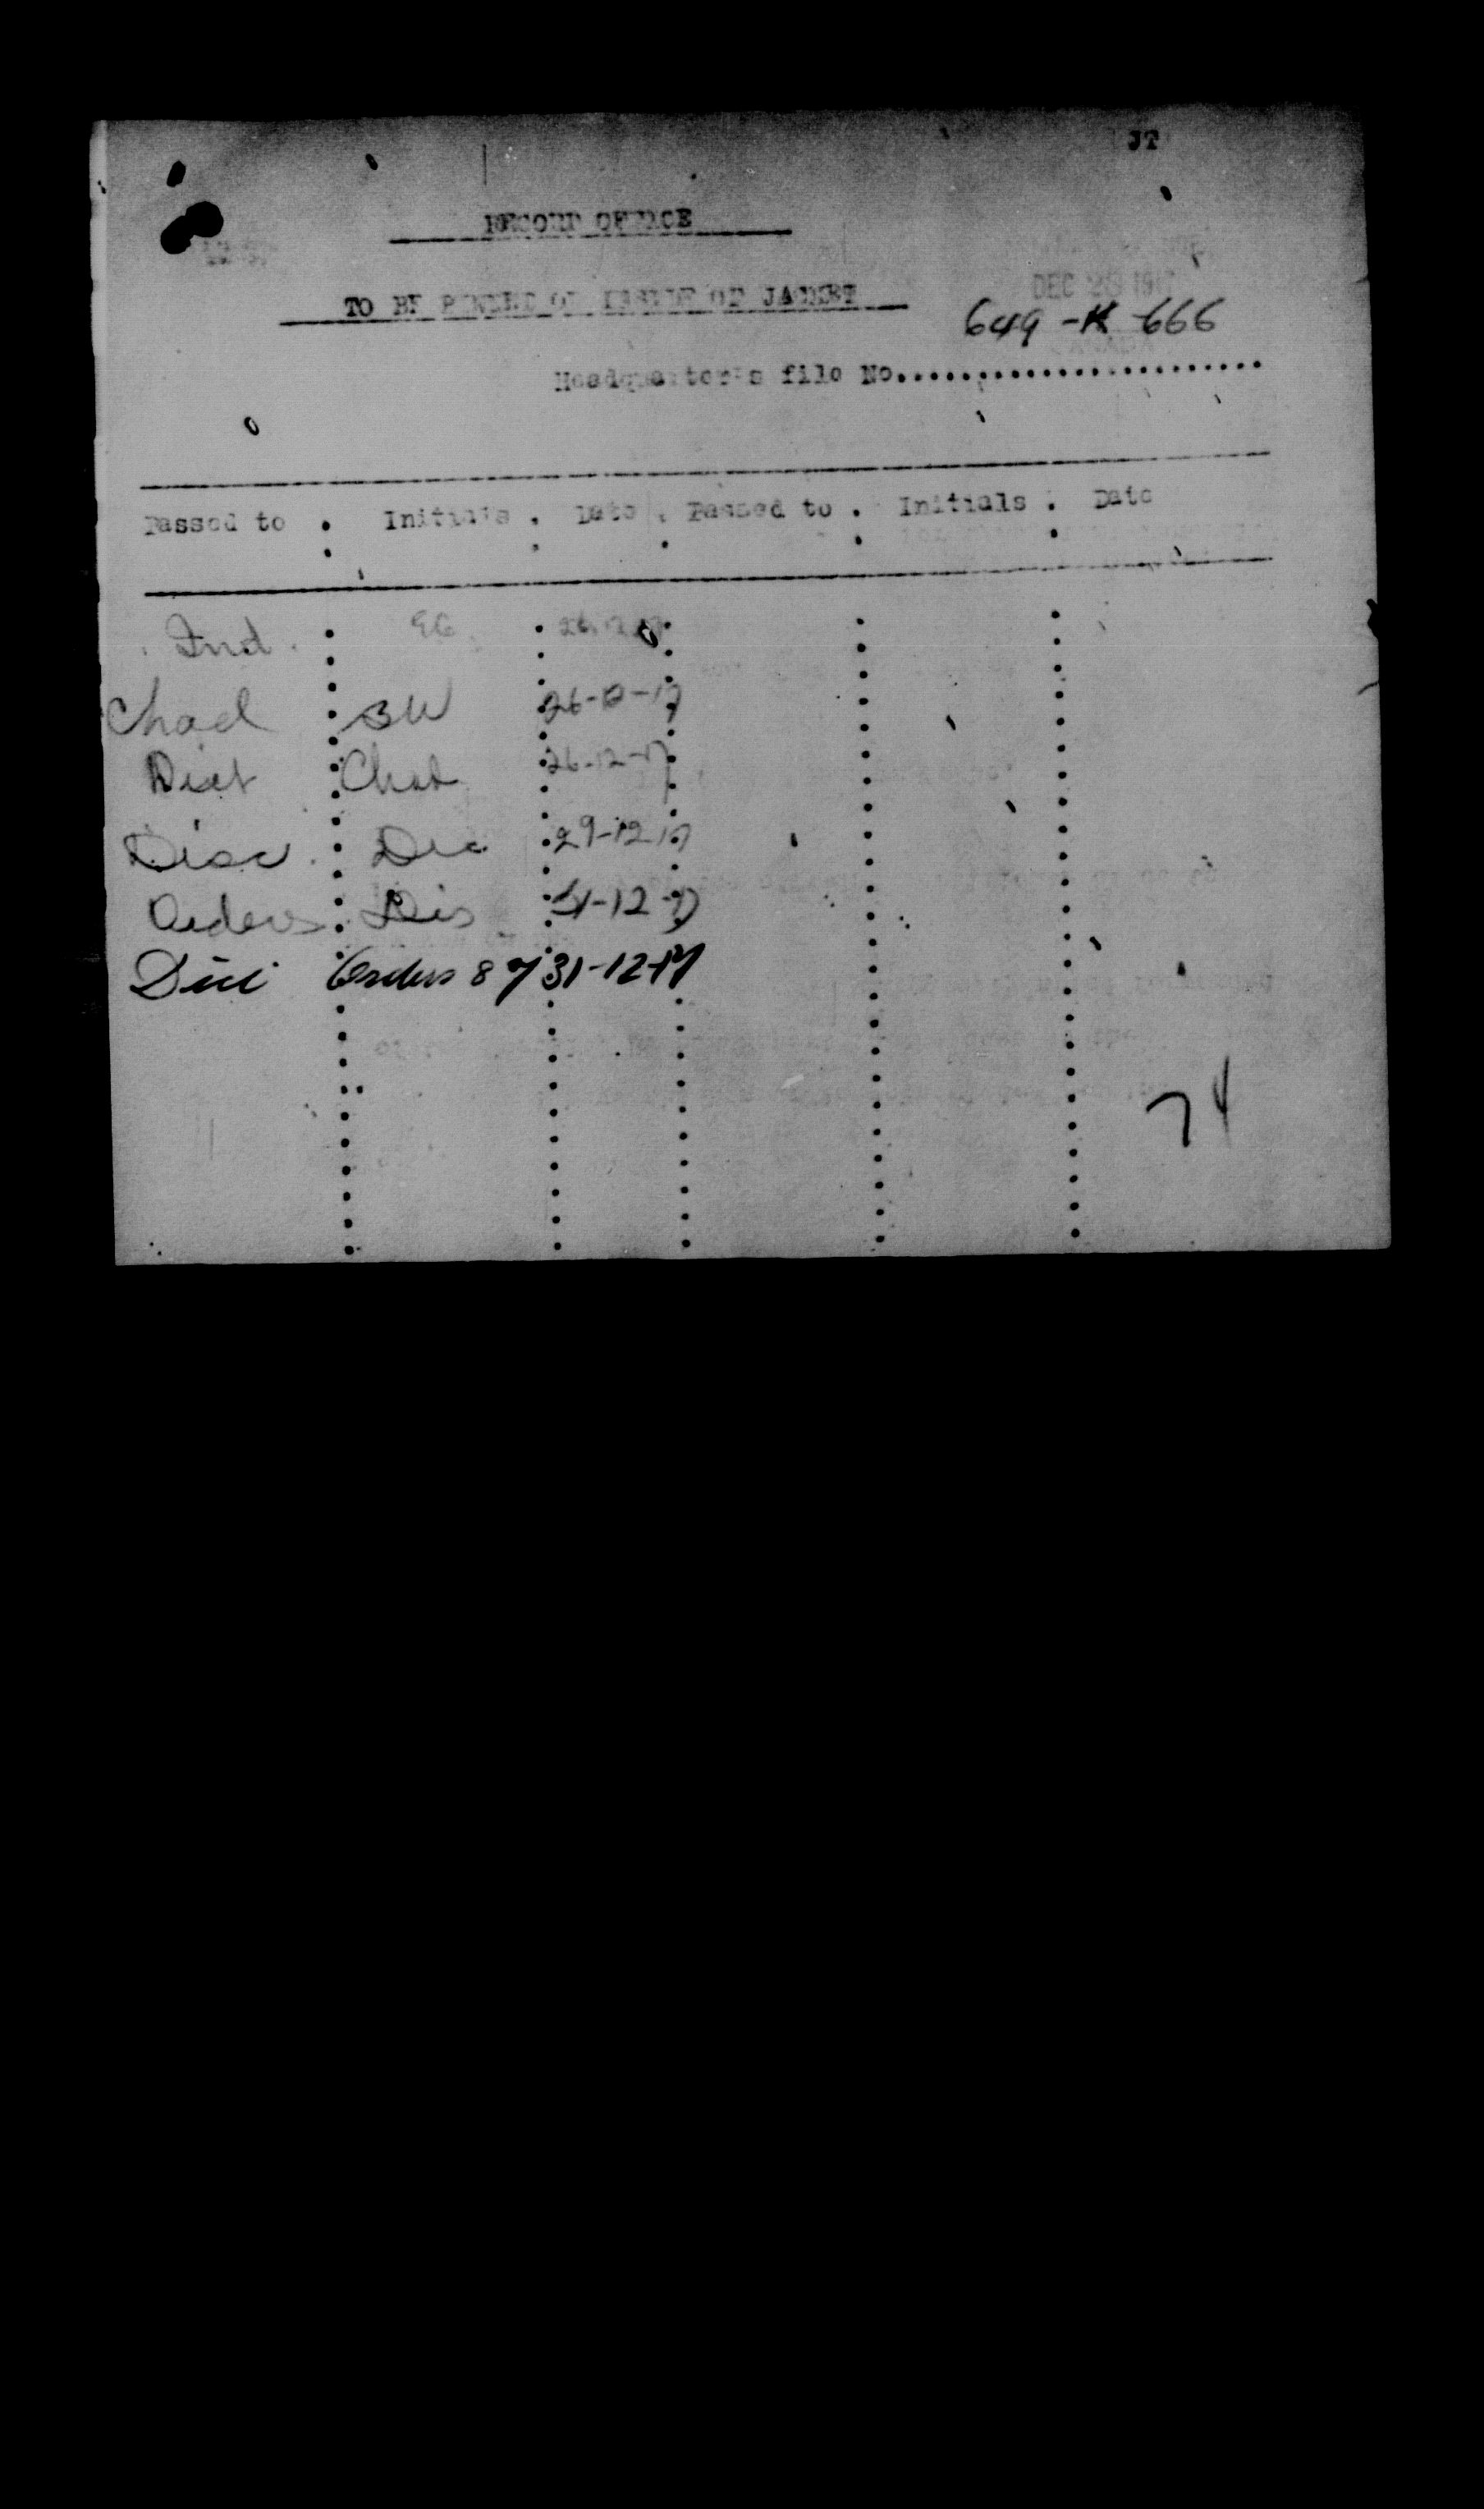 JT
RECORD OFFICE
TO BE PINNED ON INSIDE OF JACKET
DEC 1917
649-K-666
Headquarter's file No..........................
Passed to . Initials . Date . Passed to . Initials . Date
Ind. EG 26.12.17
Chad BW 26-12-17
Dist Chad 26-12-17
Disc 29-12-17
Orders Dis 31-12-17
Orders 31-12-17
74